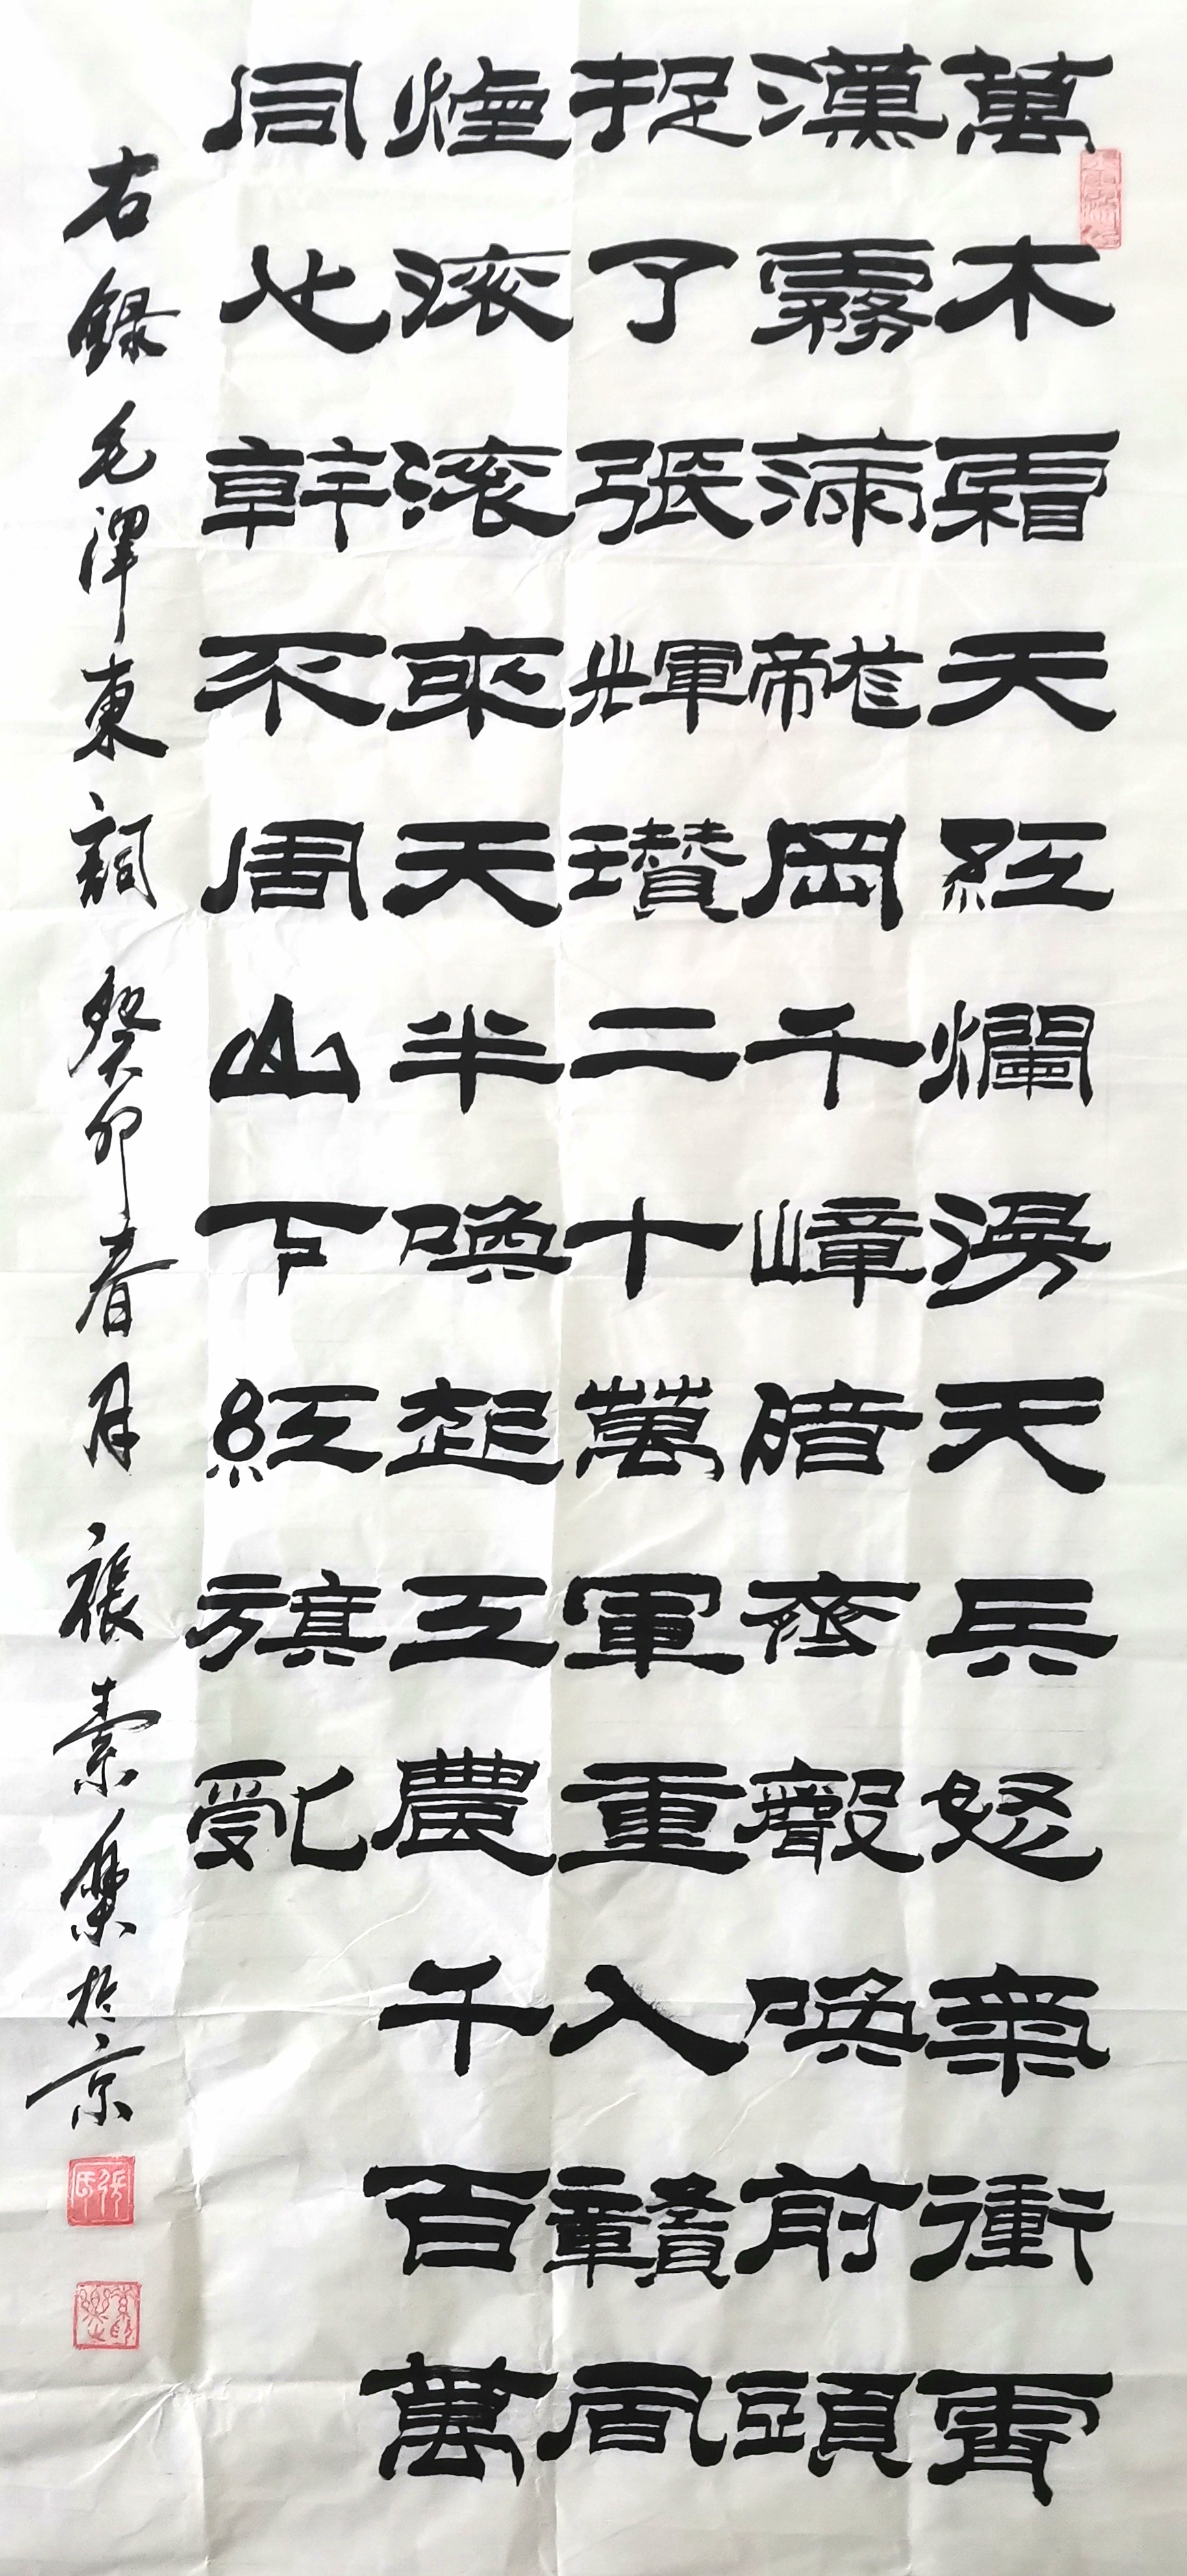 萬木霜天紅爛漫天兵怒氣衝霄
漢霧滿龍岡千嶂暗齊聲喚前頭
捉了張輝瓚二十萬軍重入贛風
煙滾滾來天半喚起工農千百萬
同心幹不周山下紅旗亂
右錄毛澤東詞癸卯春月張素樂於京